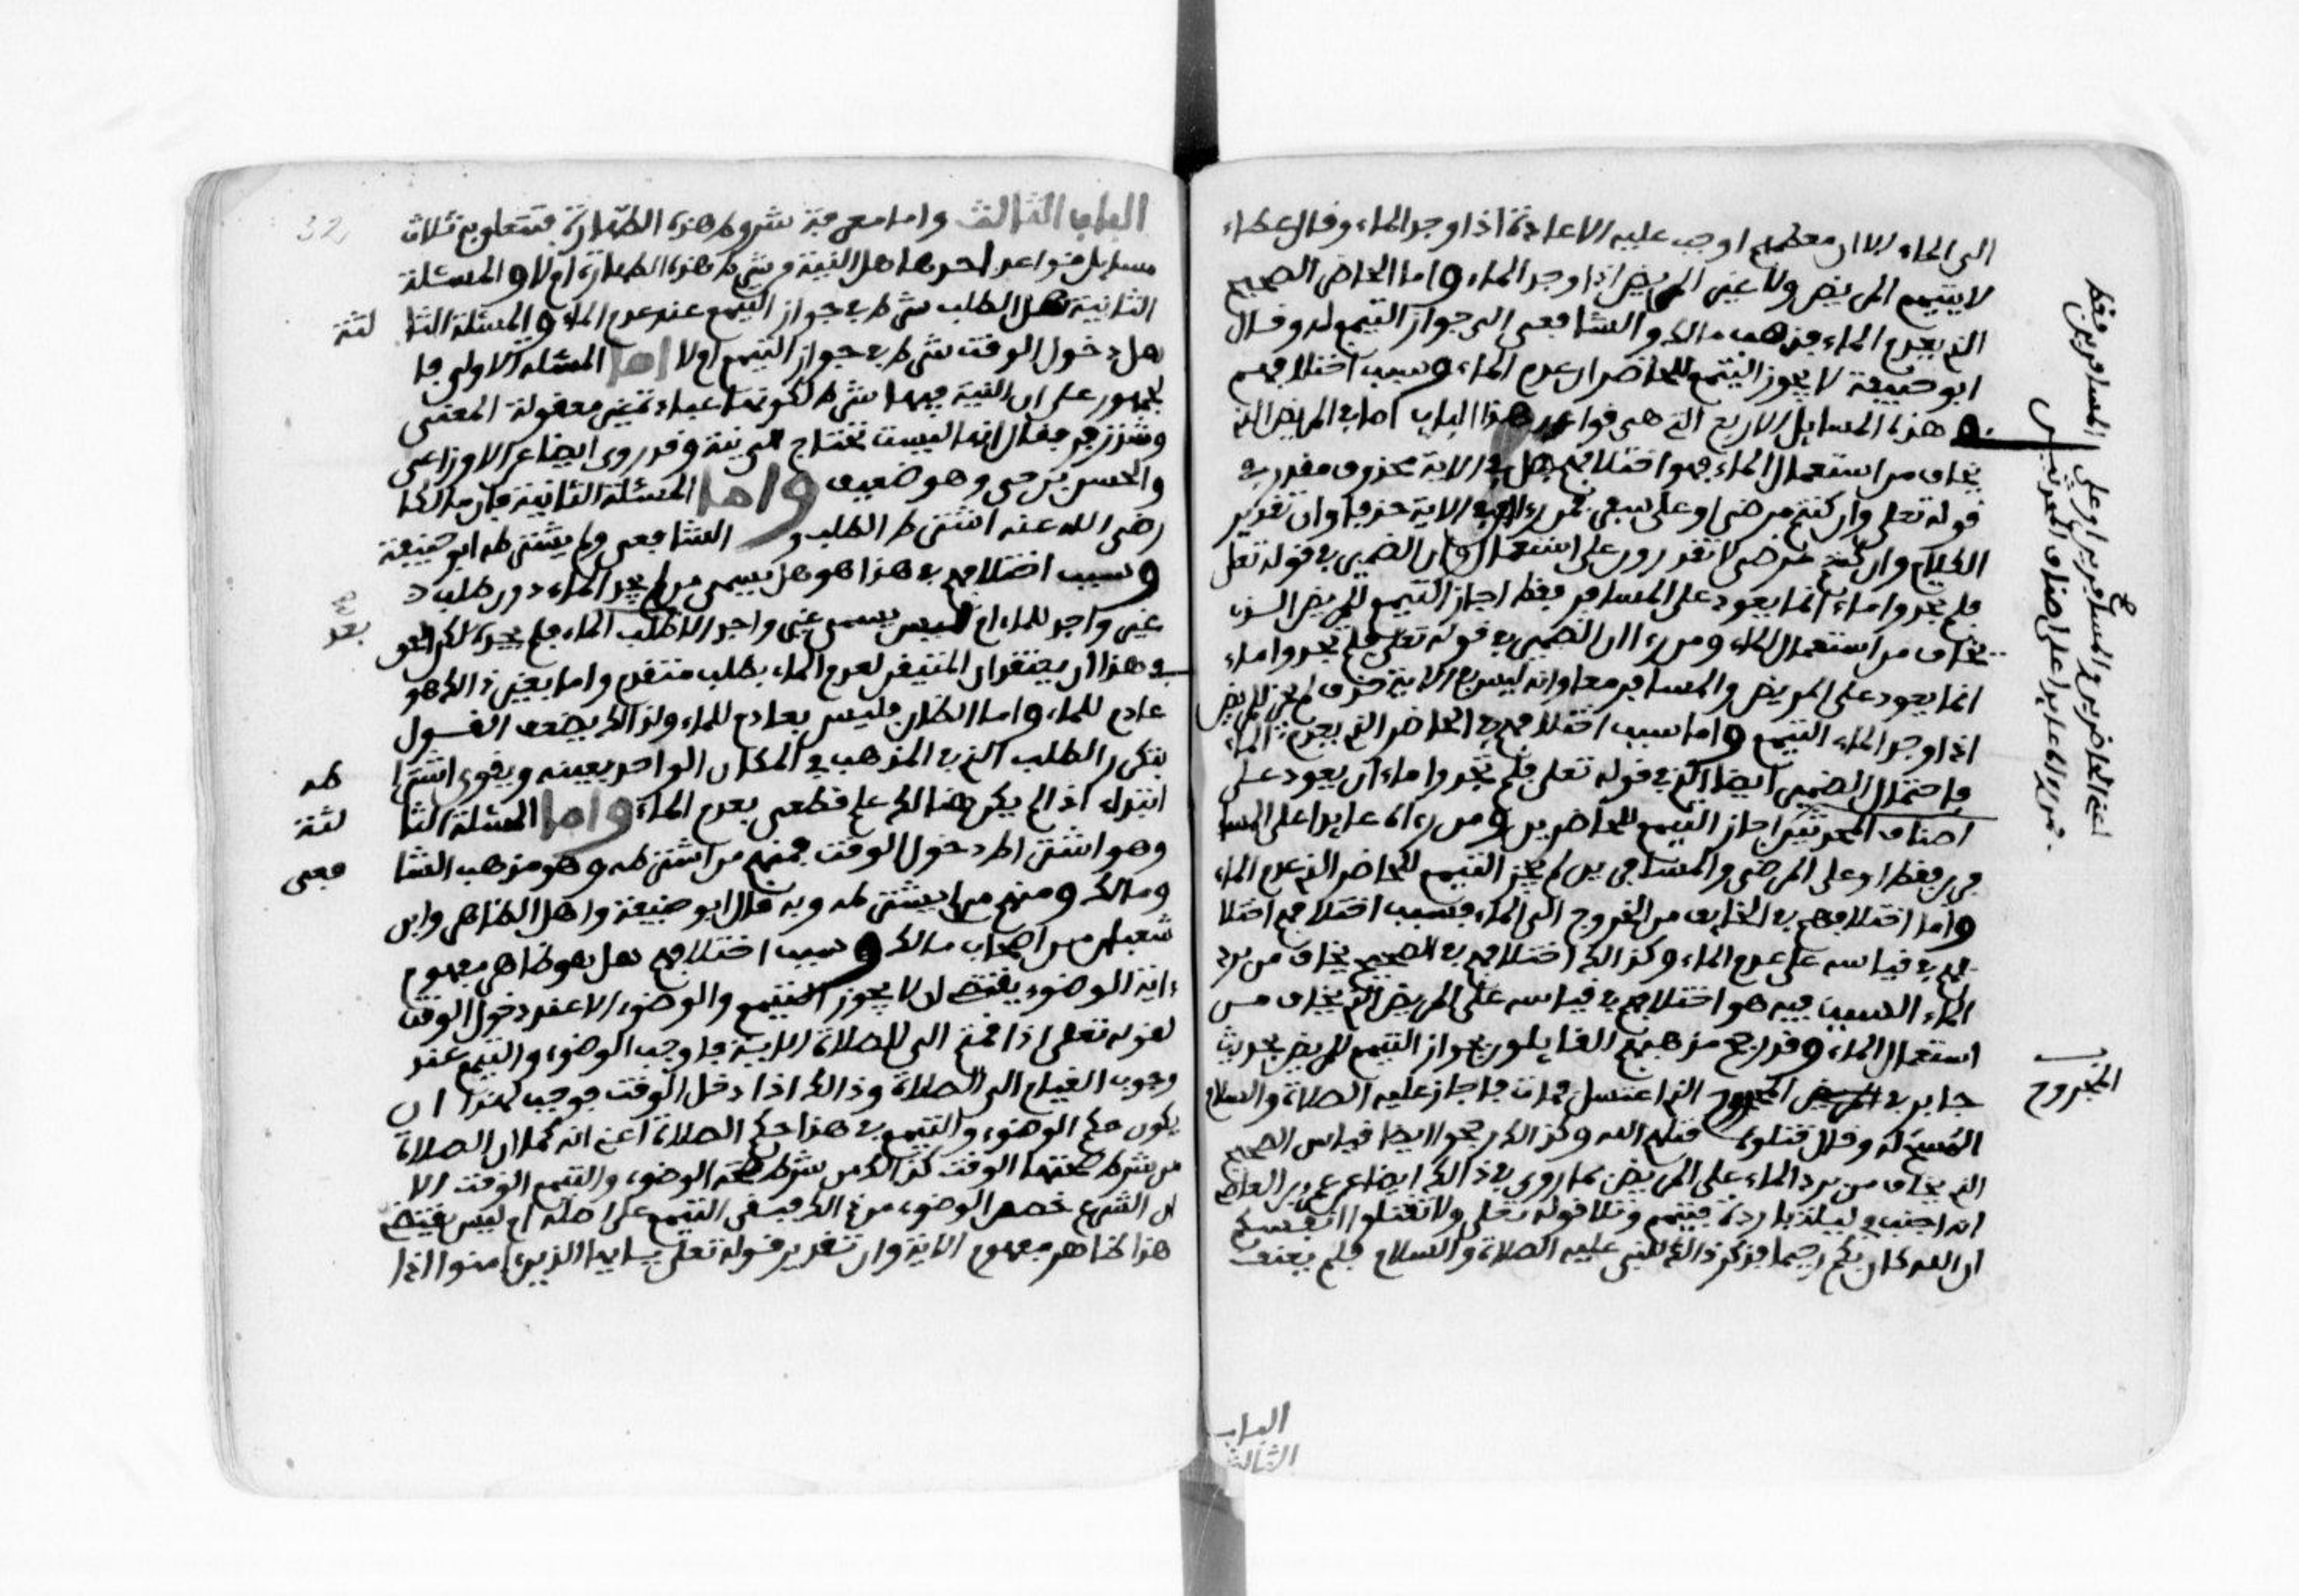 الى الماء الا ان معظمهم اوجب عليه الاعادة اذا وجد الماء وقال عطاء
لا يتيمم المريض ولا غير المريض اذا وجد الماء واما الحاضر الصحيح
الذي يعدم الماء فذهب مالك والشافعي الى جواز التيمم له وقال
ابو حنيفة لا يجوز التيمم للحاضر ان عدم الماء وسبب اختلافهم
في هذه المسايل الاربع التي هي قواعد هذا الباب اما في المريض الذي
يخاف من استعمال الماء فهو اختلافهم هل في الاية محذوف مقدر في
قوله تعلى وان كنتم مرضى او على سفر فمن رءا ان في الاية حذفا وان تقدير
الكلام وان كنتم مرضى لا تقدرون على استعمال وان الضمير في قوله تعلى
فلم تجدوا ماء انما يعود على المسافر فقط اجاز التيمم للمريض الذي
يخاف من استعمال الماء ومن رءا ان الضمير في قوله تعلى فلم تجدوا ماء
انما يعود على المريض والمسافر معا وانه ليس في الاية حذف لم يجز للمريض
اذا وجد الماء التيمم واما سبب اختلافهم في الحاضر الذي يعدم الماء
فاحتمال الضمير ايضا الذي في قوله تعلى فلم تجدوا ماء ان يعود على
اصناف المحدثين اجاز التيمم للحاضرين ومن رءاه عايدا على المسا
فرين فقط او على المرضى والمسافرين لم يجز التيمم للحاضر الذي عدم الماء
واما اختلافهم في الخايف من الخروج الى الماء فسبب اختلافهم اختلا
فهم في قياسه على عدم الماء وكذالك اختلافهم في الصحيح يخاف من برد
الماء السبب فيه هو اختلافهم في قياسه على المريض الذي يخاف من
استعمال الماء وقد رجح مذهبهم القايلون بجواز التيمم للمريض بحديث
جابر في المجروح الذي اغتسل فمات فاجاز عليه الصلاة والسلام
المسح له وقال قتلوه قتلهم الله وكذالك رجحوا ايضا قياس الصحيح
الذي يخاف من برد الماء على المريض بما روي في ذالك ايضا عن عمرو بن العاص
انه اجنب في ليلة باردة فتيمم وتلا قوله تعلى ولا تقتلوا انفسكم
ان الله كان بكم رحيما فذكر ذالك للنبي عليه الصلاة والسلام فلم يعنف
اعني الحاضرين والمسافرين او على المسافرين فقط
فمن رءاه عايدا على اصناف المحدثين
المجروح
الباب
الثالث
الباب الثالث واما معرفة شروط هذه الطهارة فيتعلق به ثلاث
مسايل قواعد احدها هل النية من شرط هذه الطهارة ام لا والمسئلة
الثانية هل الطلب شرط في جواز التيمم عند عدم الماء والمسئلة الثا لثة
هل دخول الوقت شرط في جواز التيمم او لا اما المسئلة الاولى فا
لجمهور على ان النية فيها شرط لكونها عبادة غير معقولة المعنى
وشذ زفر فقال انها ليست تحتاج الى نية وقد روي ايضا عن الاوزاعي
والحسن بن حي وهو ضعيف واما المسئلة الثانية فان مالكا
رضي الله عنه اشترط الطلب و الشافعي ولم يشترطه ابو حنيفة
وسبب اختلافهم في هذا هو هل يسمى من لم يجد الماء دون طلب
غير واجد للماء ام ليس يسمى غير واجد الا اذا طلب الماء فلم يجده لكن الحق
في هذا ان يعتقد ان المتيقن لعدم الماء بطلب متقدم واما بغير ذالك هو
عادم للماء واما الظان فليس بعادم للماء ولذالك يضعف القول
بتكرر الطلب الذي في المذهب في المكان الواحد بعينه ويقوى اشترا طه
ابتداء اذا لم يكن هنالك علم قطعي بعدم الماء واما المسئلة الثا لثة
وهو اشتراط دخول الوقت فمنهم من اشترطه وهو مذهب الشا فعي
ومالك ومنهم من لم يشترطه وبه قال ابو حنيفة واهل الظاهر وابن
شعبان من اصحاب مالك وسبب اختلافهم هل هو ظاهر مفهوم
ءاية الوضوء يقتضي ان لا يجوز التيمم والوضوء الا عند دخول الوقت
لقوله تعلى اذا قمتم الى الصلاة الاية فاوجب الوضوء والتيمم عند
وجوب القيام الى الصلاة وذالك اذا دخل الوقت فوجب لهذا ان
يكون حكم الوضوء والتيمم في هذا حكم الصلاة اعني انه كما ان الصلاة
من شرط صحتها الوقت كذالك من شرط صحة الوضوء والتيمم الوقت الا
ان الشرع خصص الوضوء من ذالك فبقي التيمم على اصله ام ليس يقتضي
هذا ظاهر مفهوم الاية وان تقدير قوله تعلى يايها الذين ءامنوا اذا